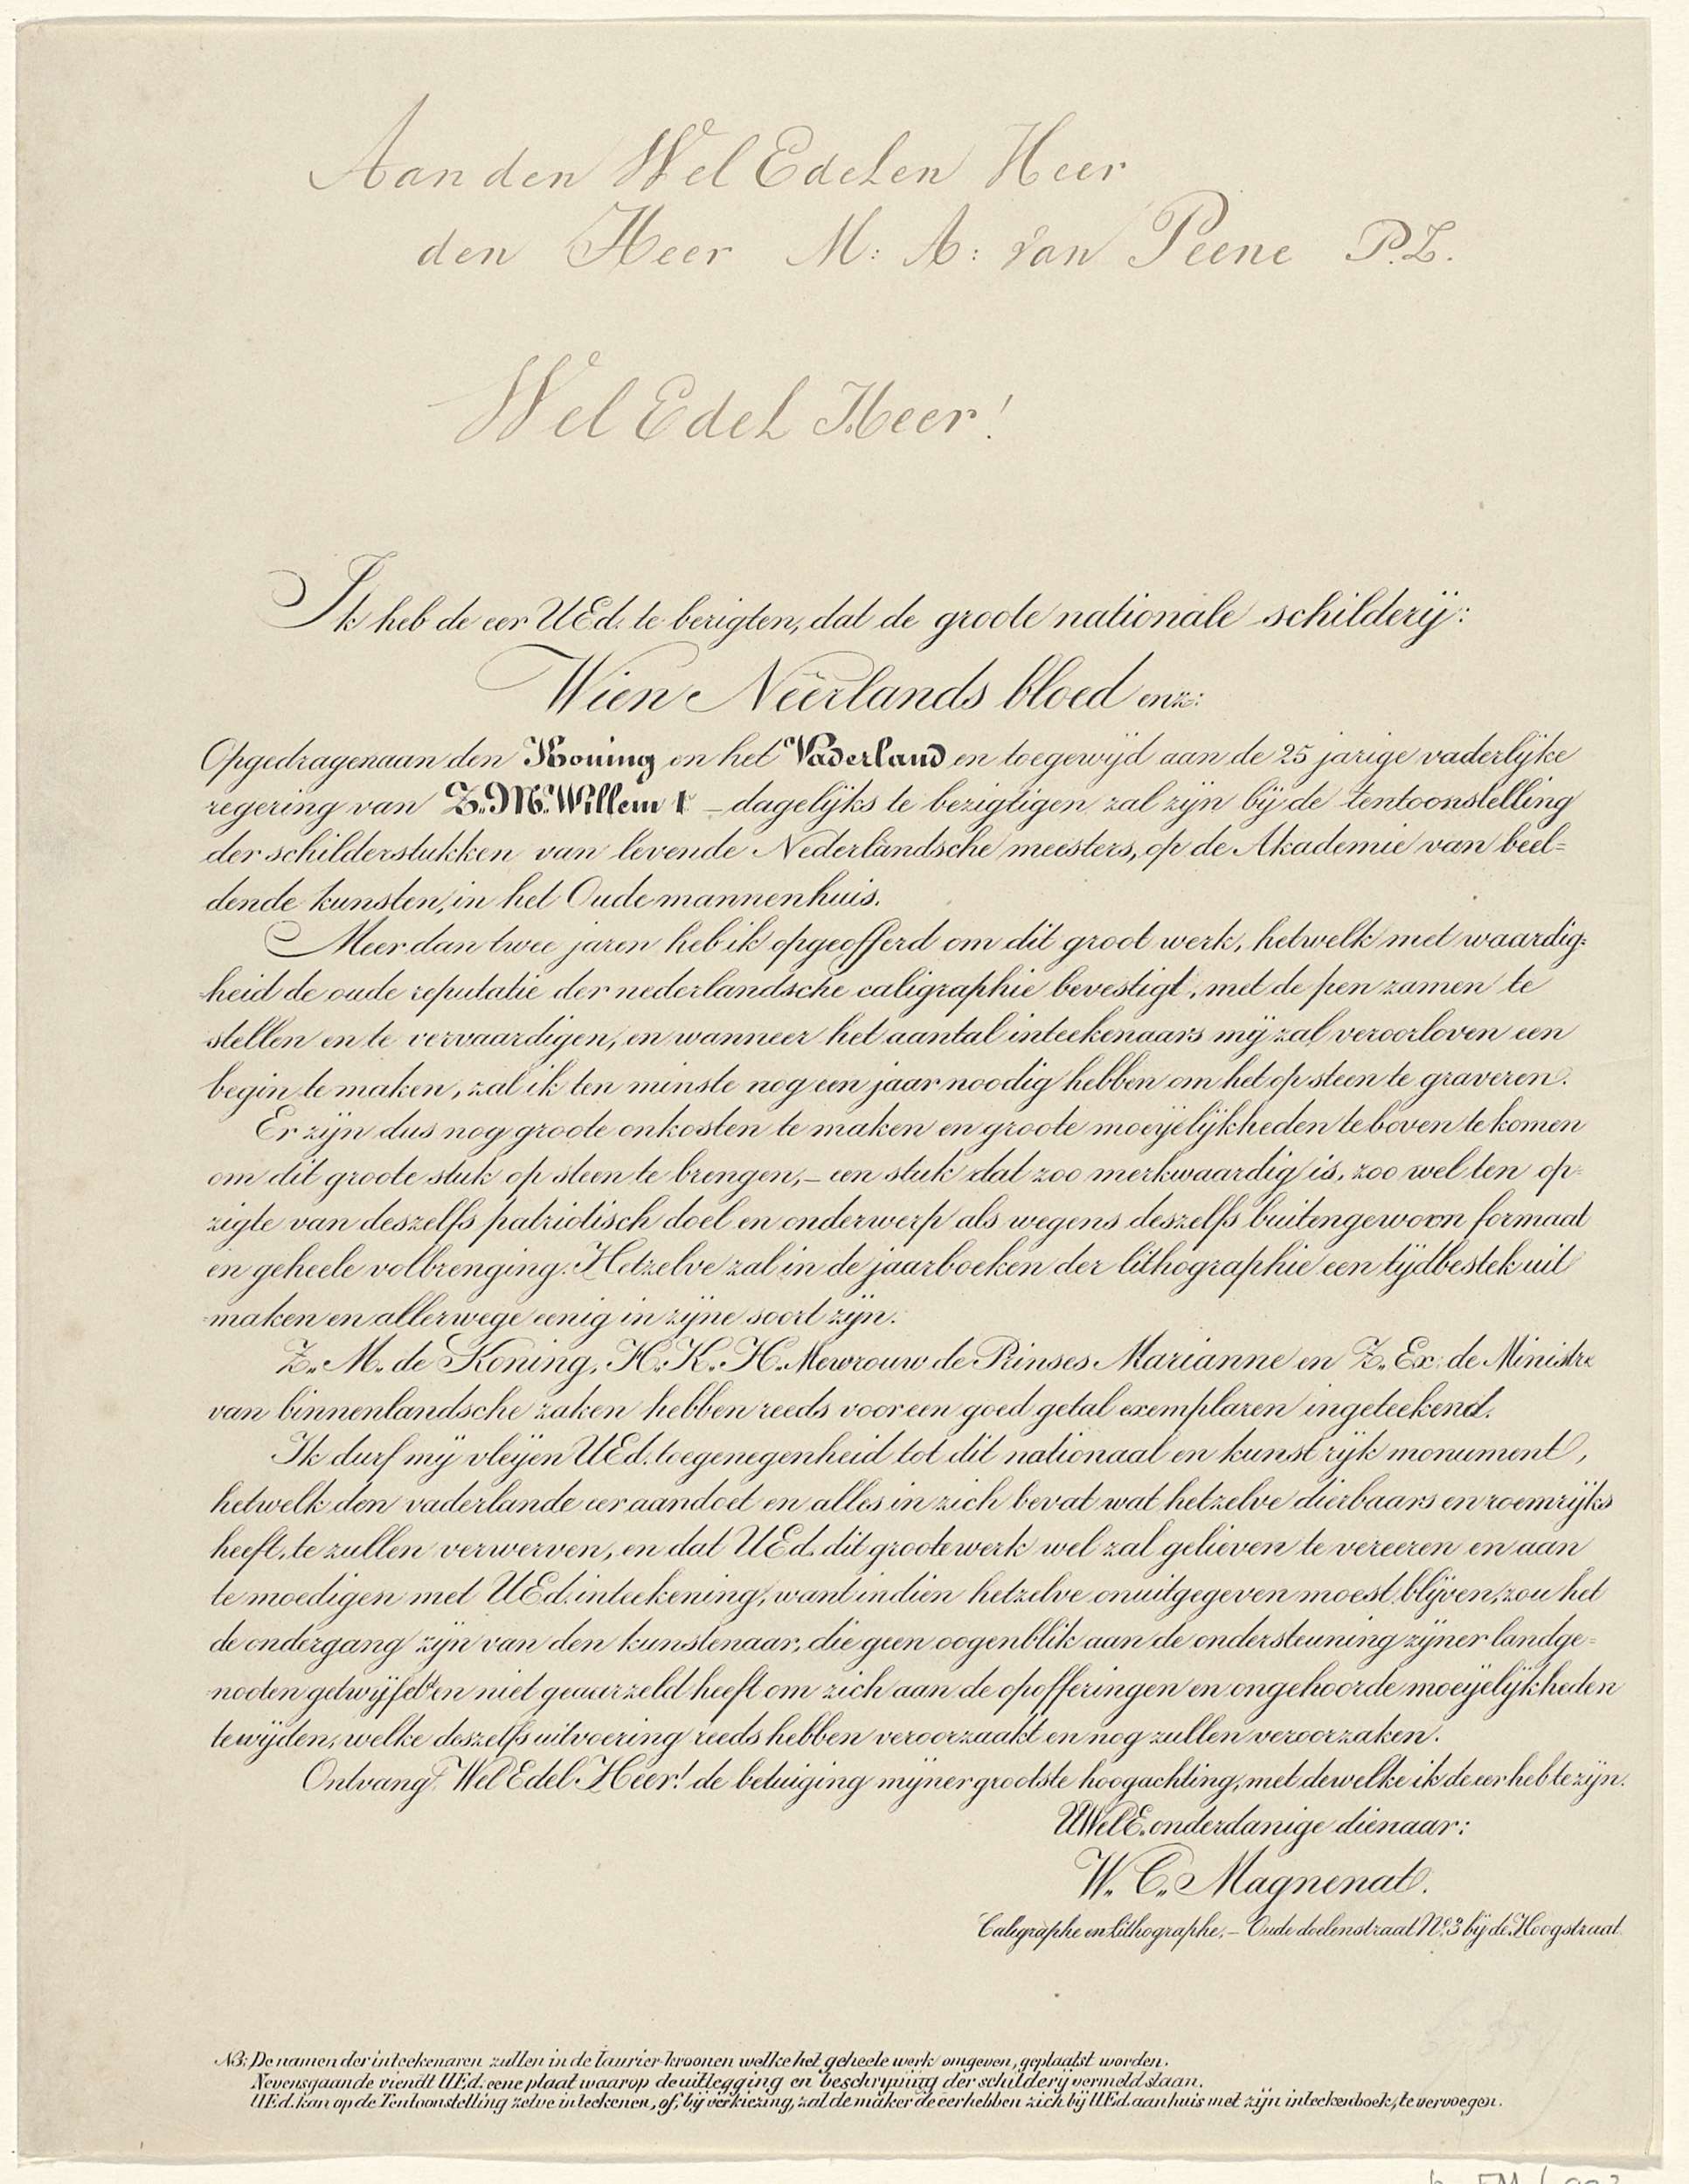 Aan den Wel Edelen Heer
den Heer M: A: van Peene P.Z.
Wel Edel Heer!
Ik heb de eer UEd. te berigten, dat de groote nationale schilderij:
Wien Neêrlands bloed enz:
Opgedragen aan den Koning en het Vaderland en toegewijd aan de 25 jarige vaderlijke
regering van Z.M. Willem I – dagelijks te bezigtigen zal zijn bij de tentoonstelling
der schilderstukken van levende Nederlandsche meesters, op de Akademie van beel=
dende kunsten, in het Oude mannenhuis.
Meer dan twee jaren heb ik opgeofferd om dit groot werk, hetwelk met waardig=
heid de oude reputatie der nederlandsche caligraphie bevestigt, met de pen zamen te
stellen en te vervaardigen, en wanneer het aantal inteekenaars mij zal veroorloven een
begin te maken, zal ik ten minste nog een jaar noodig hebben om het op steen te graveren.
Er zijn dus nog groote onkosten te maken en groote moeijelijkheden te boven te komen
om dit groote stuk op steen te brengen, – een stuk dat zoo merkwaardig is, zoo wel ten op=
zigte van deszelfs patriotisch doel en onderwerp als wegens deszelfs buitengewoon formaat
en geheele volbrenging. Hetzelve zal in de jaarboeken der lithographie een tijdbestek uit
maken en allerwege eenig in zijne soort zijn.
Z. M. de Koning, H. K. H. Mevrouw de Prinses Marianne en Z. Ex. de Ministre
van binnenlandsche zaken hebben reeds voor een goed getal exemplaren ingeteekend.
Ik durf mij vleijen UEd. toegenegenheid tot dit nationaal en kunst rijk monument,
hetwelk den vaderlande eer aandoet en alles in zich bevat wat hetzelve dierbaars en roemrijks
heeft, te zullen verwerven, en dat UEd. dit groote werk wel zal gelieven te vereeren en aan
te moedigen met UEd. inteekening, want indien hetzelve onuitgegeven moest blijven, zou het
de ondergang zijn van den kunstenaar, die geen oogenblik aan de ondersteuning zijner landge=
nooten getwijfeld en niet geaarzeld heeft om zich aan de opofferingen en ongehoorde moeijelijkheden
te wijden, welke deszelfs uitvoering reeds hebben veroorzaakt en nog zullen veroorzaken.
Ontvang Wel Edel Heer! de betuiging mijner grootste hoogachting, met dewelke ik de eer heb te zijn.
UWelE. onderdanige dienaar:
W. C. Magnenat.
Caligraphe en lithographe, – Oude doelenstraat No. 3 bij de Hoogstraat.
NB: De namen der inteekenaren zullen in de laurier-kroonen welke het geheele werk omgeven, geplaatst worden.
Nevensgaande viendt UEd. eene plaat waarop de uitlegging en beschrijving der schilderij vermeld staan.
UEd. kan op de Tentoonstelling zelve inteekenen, of, bij verkiezing, zal de maker de eer hebben zich bij UEd. aan huis met zijn inteekenboek, te vervoegen.